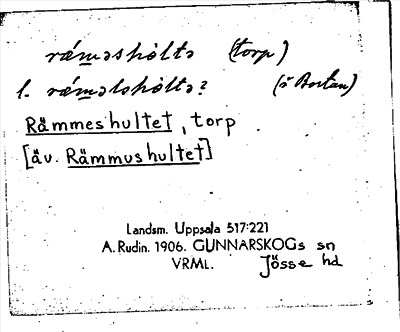 rámǝshåltǝ (torp)
l. rámǝlshåltǝ? (ö Bortan)
Rämmeshultet, torp
[äv. Rämmushultet]
Landsm. Uppsala 517:221
A. Rudin. 1906. GUNNARSKOGs sn
VRML. Jösse hd